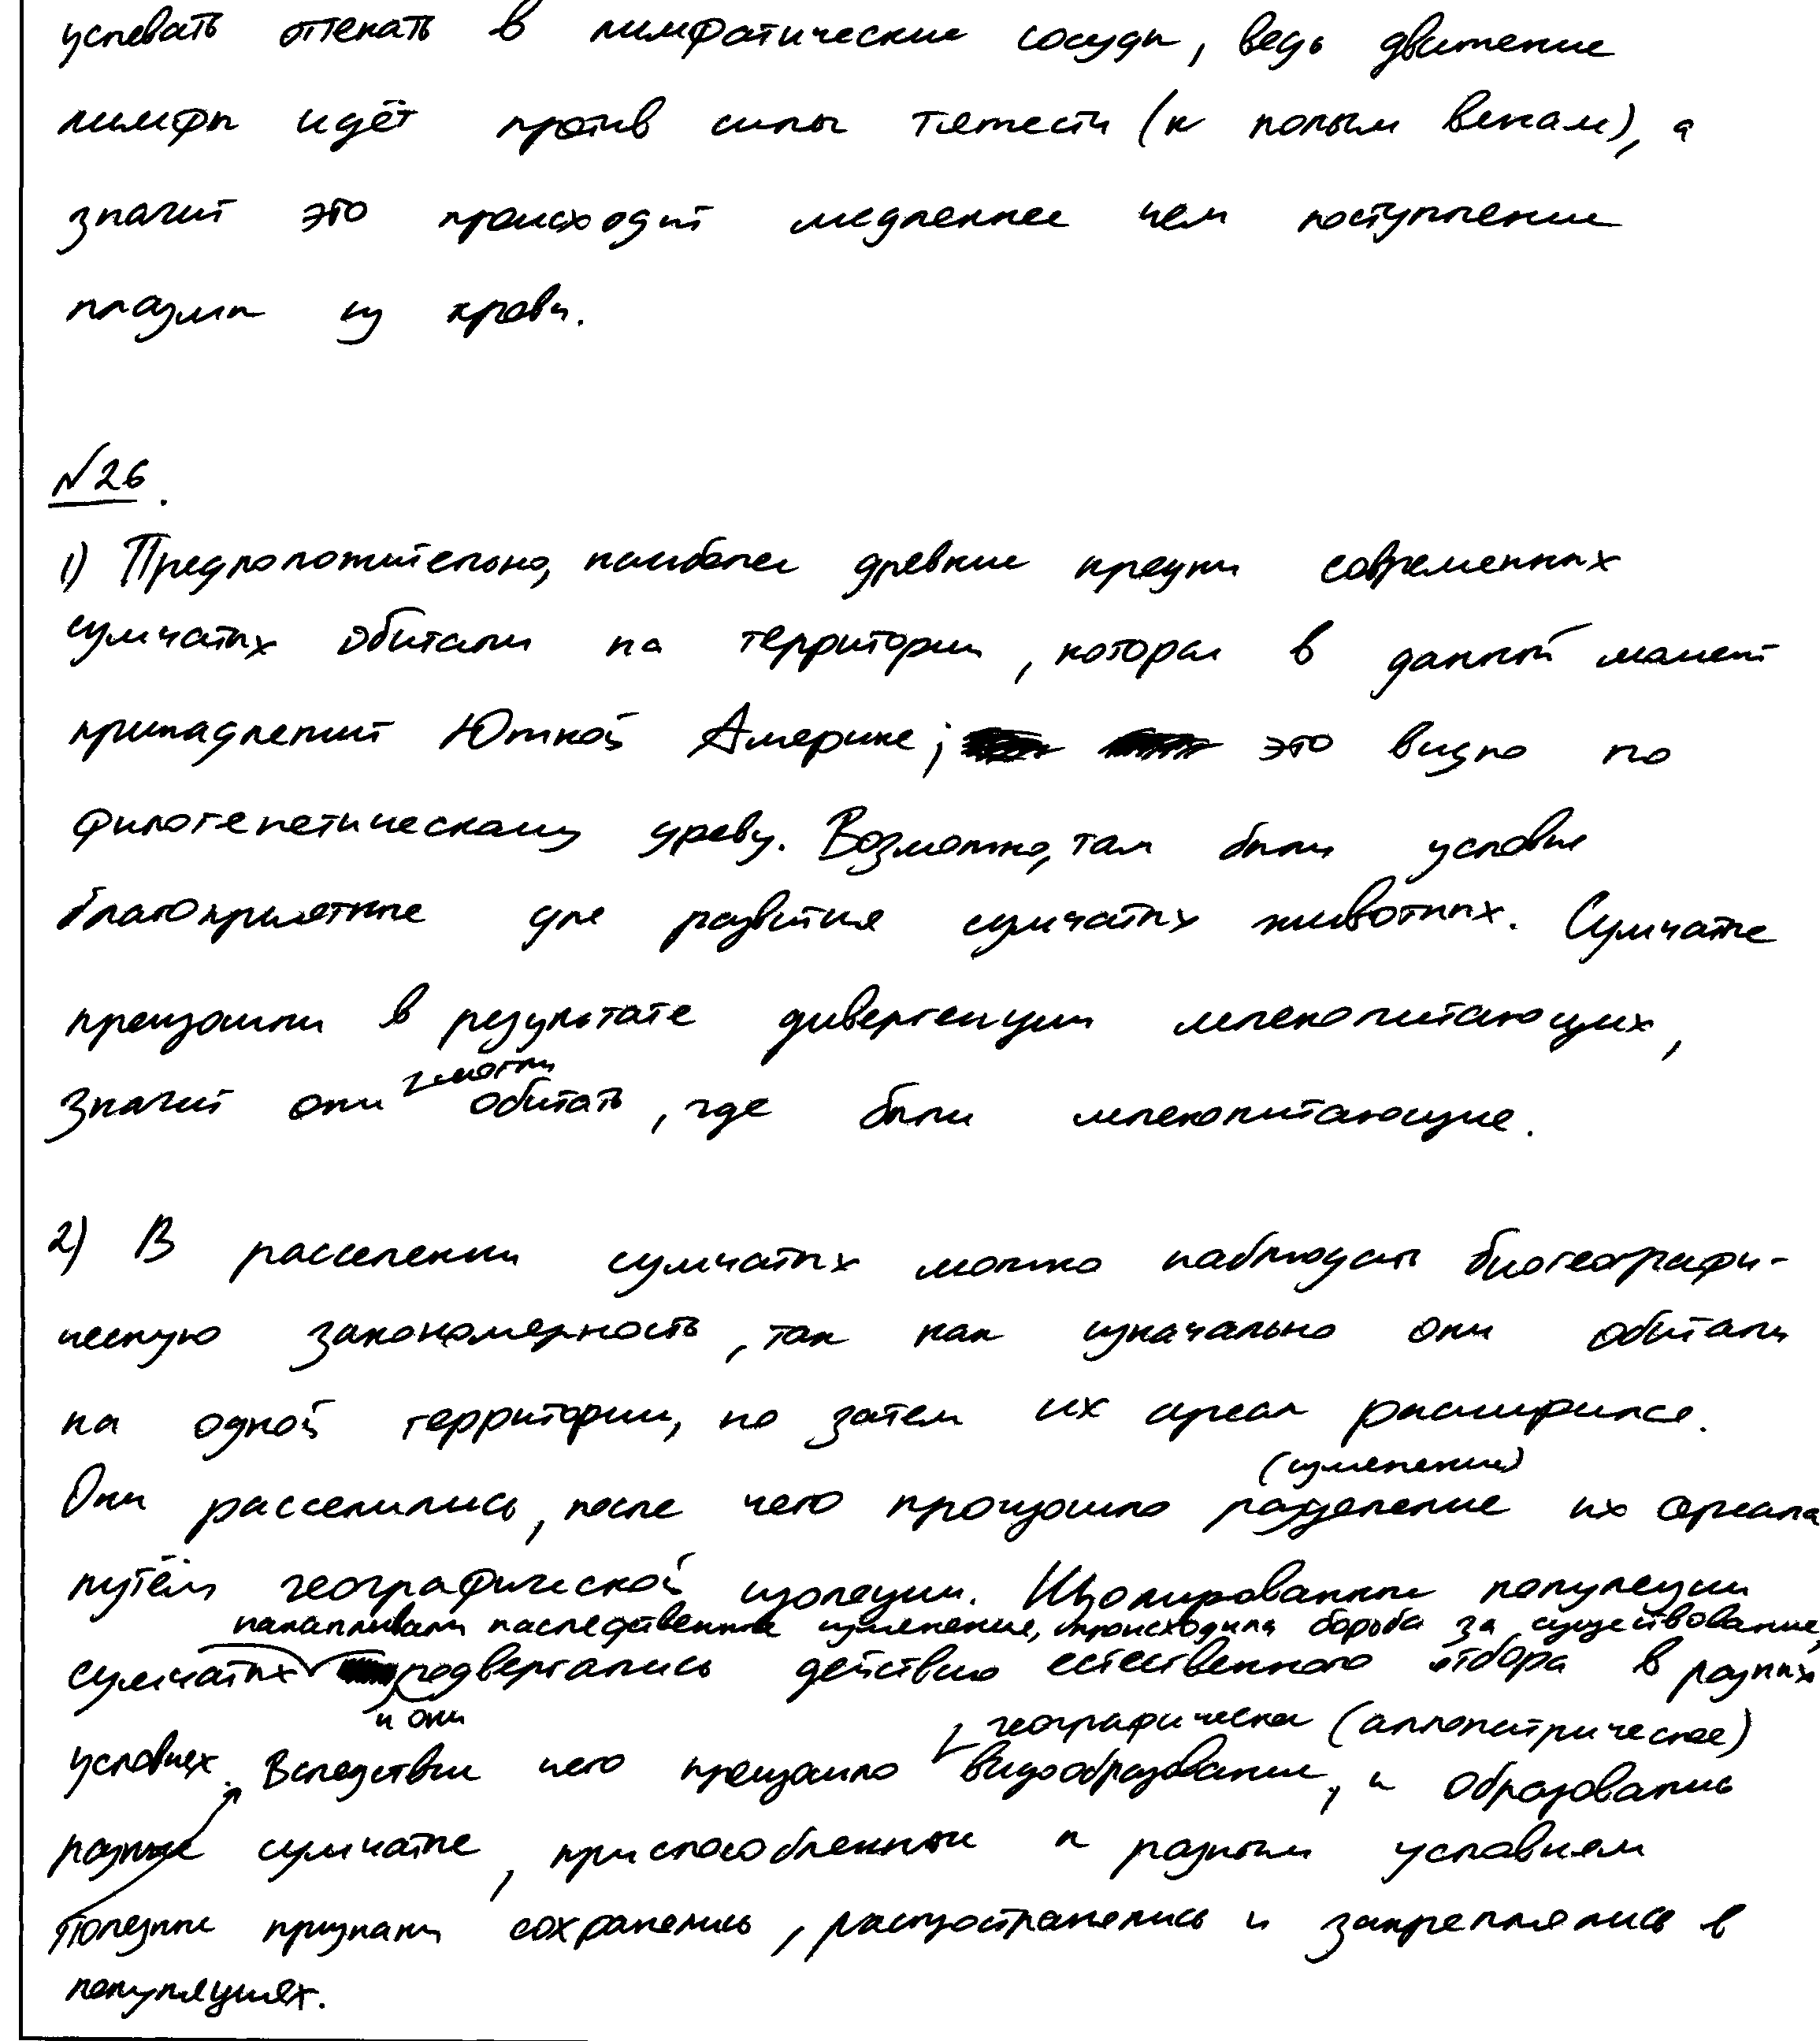 успевать оттекать в лимфатические сосуды, ведь движение
лимфы идёт против силы тяжести (к полым венам), а
значит это происходит медленнее чем поступление
плазмы из крови.
№26.
1) Предположительно, наиболее древние предки современных
сумчатых обитали на территории, которая в данный момент
принадлежит Южной Америке; это видно по
филогенетическому древу. Возможно, там были условия
благоприятные для развития сумчатых животных. Сумчатые
произошли в результате дивергенции млекопитающих,
могли
значит они обитать, где были млекопитающие.
2) В расселении сумчатых можно наблюдать биогеографи-
ческую закономерность, так как изначально они обитали
на одной территории, но затем их ареал расширился.
(изменение)
Они расселились, после чего произошло разделение их ареала
путём географической изоляции. Изолированные популяции
накапливали наследственные изменения, происходила борьба за существование,
сумчатых подвергались действию естественного отбора в разных
и они
географическое (аллопатрическое)
условиях. Вследствие чего произошло видообразование, и образовались
разные сумчатые, приспособленные к разным условиям
Полезные признаки сохранялись, распространялись и закреплялись в
популяциях.